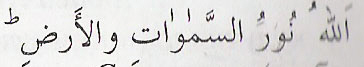 اللهُ نُورُ السَّمٰوٰتِ والأَرضِ ؕ